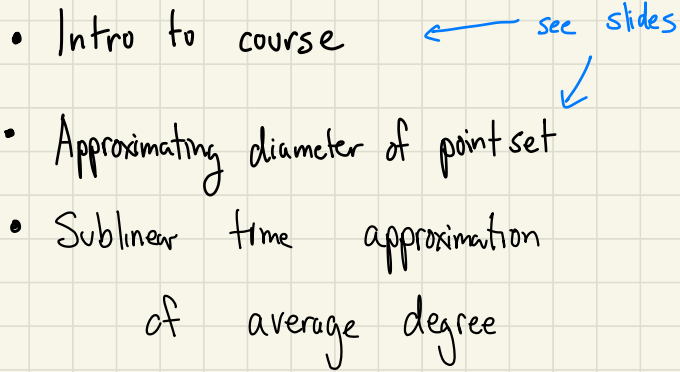 • Intro to course ← see slides
• Approximating diameter of point set
• Sublinear time approximation
of average degree